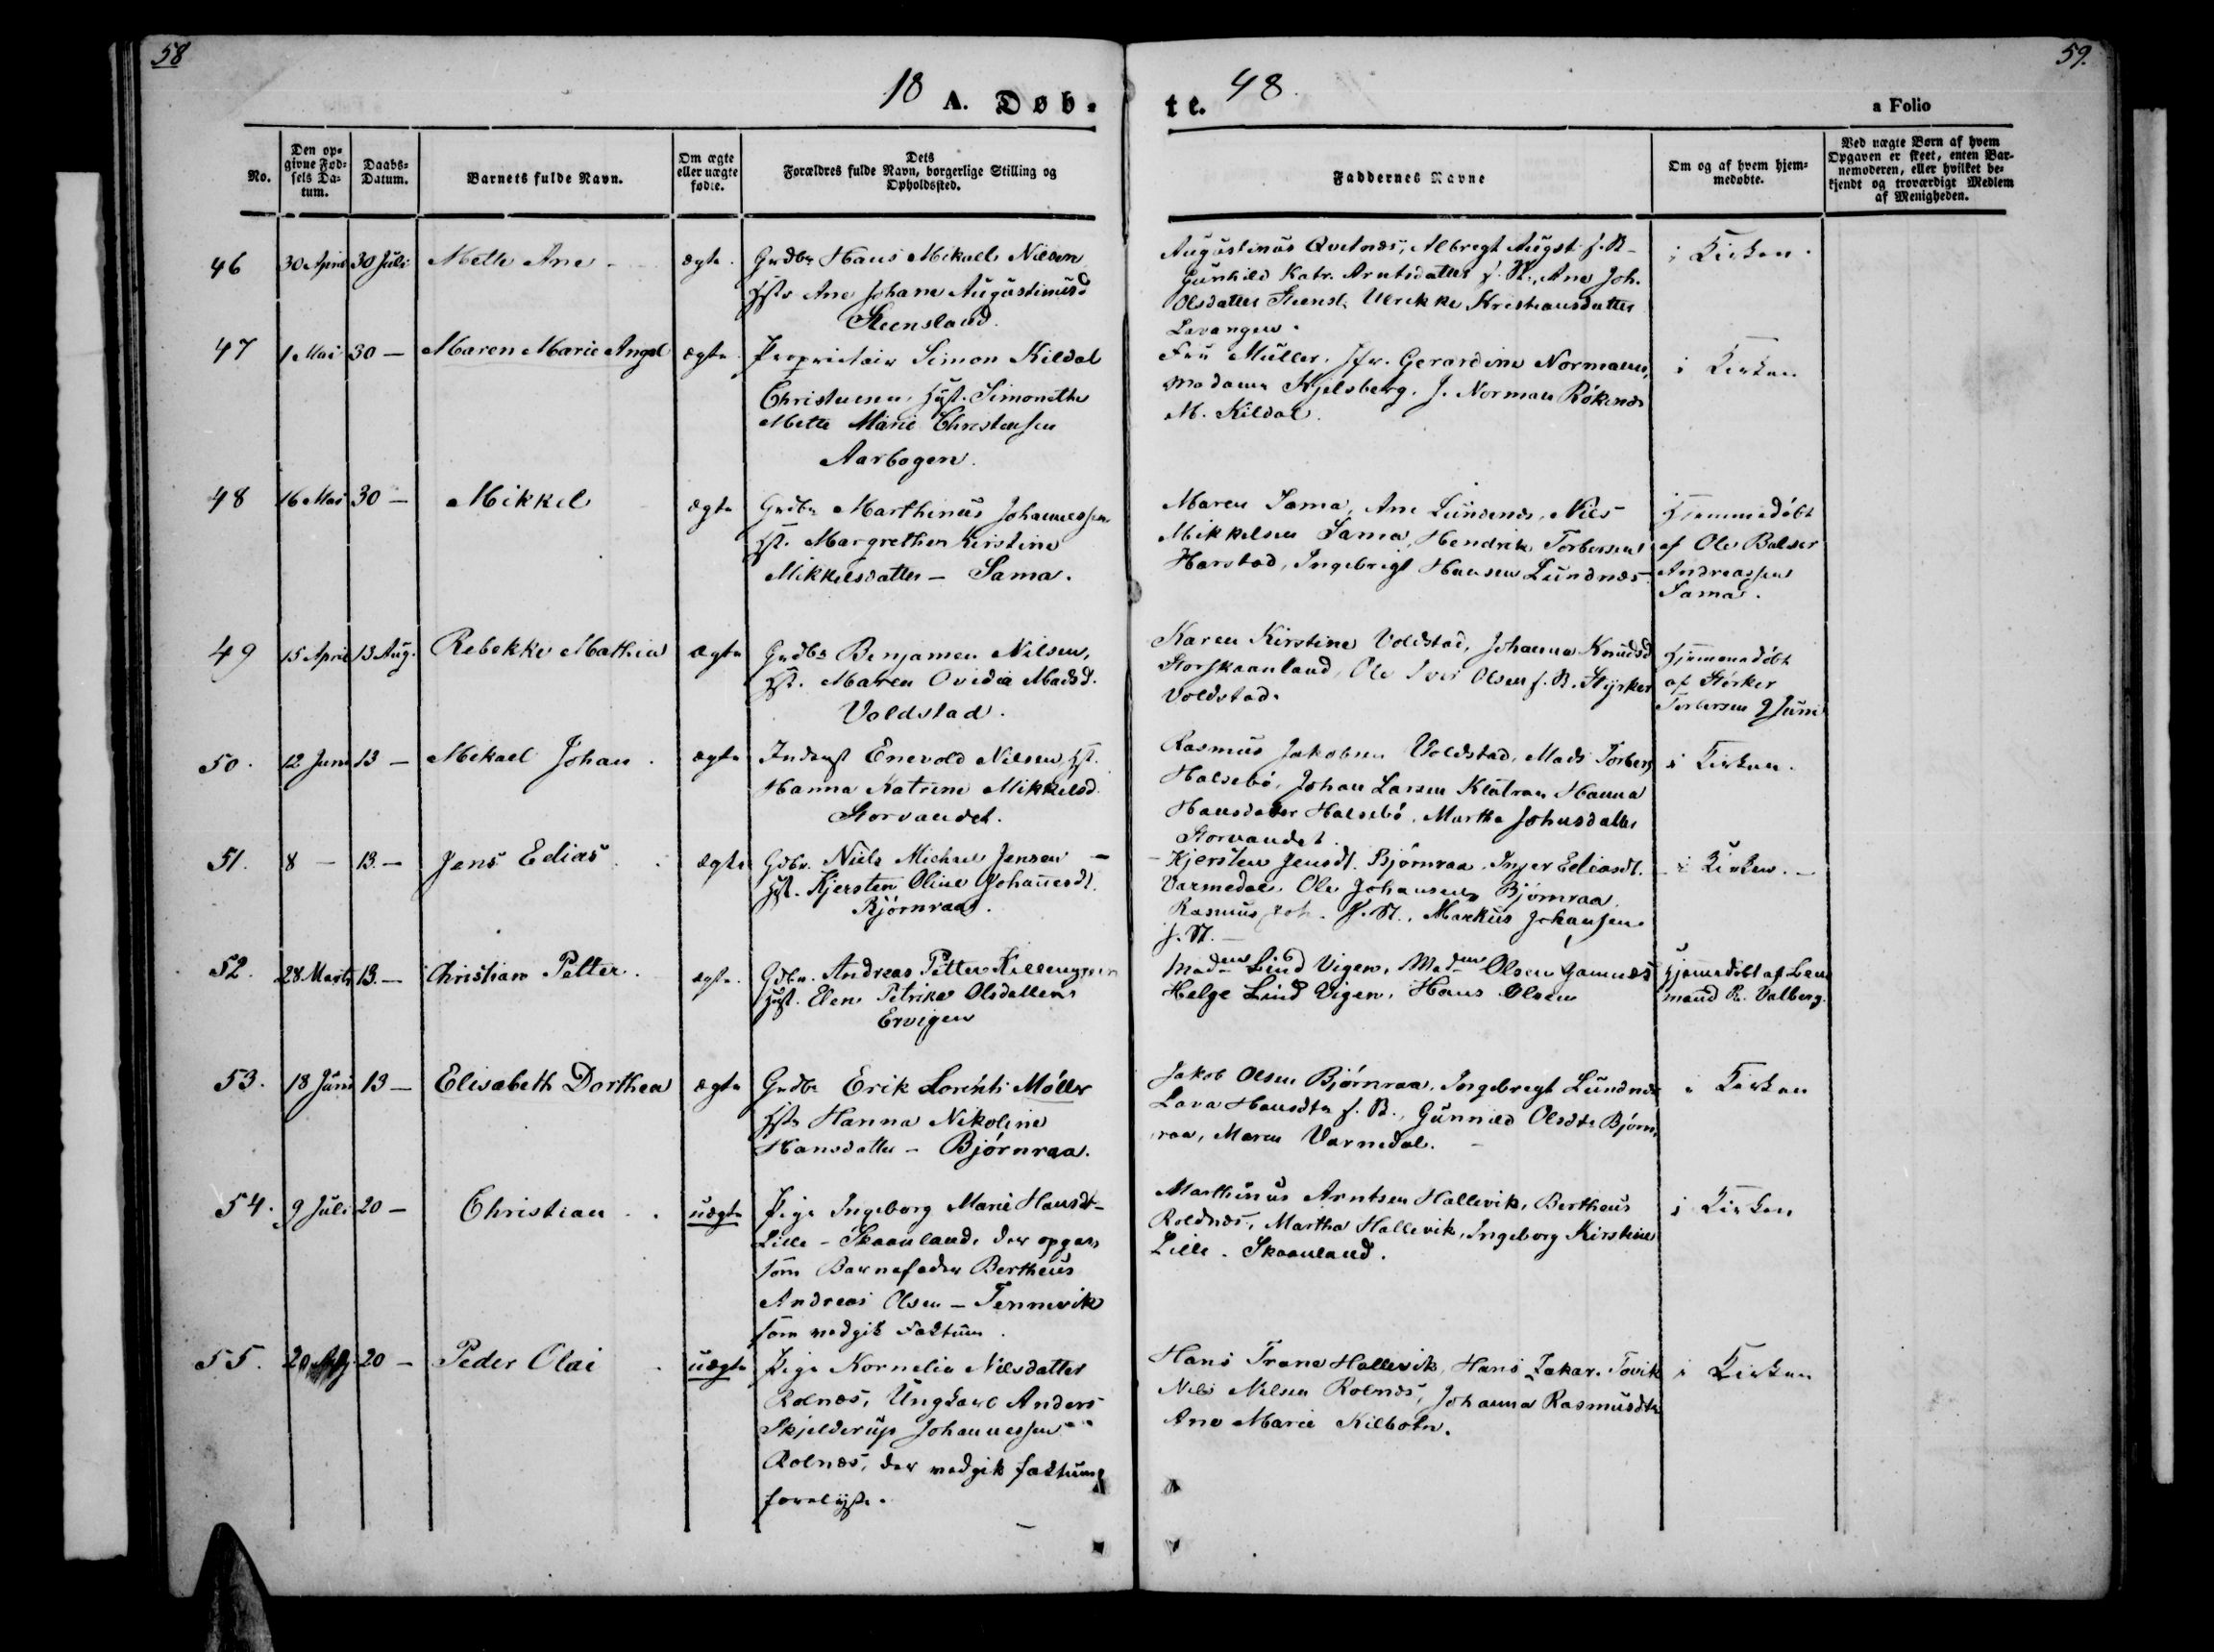 58
59.
18 A. Døb-
te. 48.
a Folio
No.
Den op-
givne Fød-
sels Da-
tum.
Daabs-
Datum.
Barnets fulde Navn.
Om ægte
eller uægte
fødte.
Dets
Forældres fulde Navn, borgerlige Stilling og
Opholdssted.
Faddernes Navne
Om og af hvem hjem-
medøbte.
Ved uægte Børn af hvem
Opgaven er skeet, enten Bar-
nemoderen, eller hvilket be-
kjendt og troværdigt Medlem
af Menigheden.
46 30 April 30 Juli Mette Ane ægte. Grdbr Hans Mikael Nilsen
Hst. Ane Johane Augustinusd
Steensland.
Augustinus Qvitnæs, Albregt Augst. s. St.
Gunhild Katr. Arntsdatter s. St., Ane Joh.
Olsdatter Steensl. Ulrikke Kristiansdatter
Lavangen.
i Kirken.
47 1 Mai 30 — Maren Marie Angel ægte. Proprietair Simon Kildal
Christensen, Hust. Simonette
Mette Marie Christensen
Aarbogen.
Fru Müller, Jfr. Gerardine Normann,
Madame Kjelsberg, J. Normann Rökenæs
M. Kildal.
i Kirken
48 16 Mai 30 — Mikkel ægte Grdbr Marthinus Johannessen
Hst. Margrethe Kirstine
Mikkelsdatter — Sama.
Maren Sama, Ane Lundenæs, Nils
Mikkelsen Sama, Hendrik Torbersen
Harstad, Ingebrigt Hansen Lundnæs
Hjemmedöbt
af Ole Balser
Andreassen
Sama.
49 15 April 13 Aug. Rebekke Mathea ægte Grdbr Benjamen Nilsen,
Hst. Maren Ovidia Madsd.
Voldstad.
Karen Kirstine Voldstad, Johanna Knudsd
Storskaanland, Ole Iver Olsen s. St. Styrker
Voldstad.
Hjemmedöbt
af Störker
Torbersen 9 Juni
50. 12 Juni 13 — Mikael Johan. ægte Inderst Enevold Nilsen, Hst.
Hanna Katrine Mikkelsd.
Storvandet.
Rasmus Jakobsen Voldstad, Mads Torbers
Halsebö, Johan Larsen Hanna
Hansdatter Halsebö, Martha Johnsdatter
Storvandet.
i Kirken.
51. 8 — 13. — Jens Edias. ægte Gdbr. Niels Michael Jensen —
Hst. Kjersten Oline Johannesdt.
Bjørnraa.
Kjersten Jensdt. Bjørnraa. Inger Ediasdt.
Varmedal. Ole Johansen Bjørnraa.
Rasmus Joh. s. St., Markus Johansen
s. St. —
i Kirken. —
52. 28 Marts 13. — Christian Petter. ægte. Gdbr. Andreas Petter
Hust. Elen Petrike Olsdatter
Ervigen
Madm Lind Vigen, Madm Olsen Gamnæs
Helge Lind Vigen, Hans Olsen
Hjemmedöbt af Lens
mand R. Valberg.
53. 18 Juni 13 — Elisabeth Dorthea ægte Grdbr Erik Lorents Möller
Hst. Hanna Nikoline
Hansdatter — Bjørnraa.
Jakob Olsen Bjørnraa, Ingebregt Lundnæs
Lava Hansdtr s. St., Gunnild Olsdtr Bjørn-
raa, Maren Varmedal. —
i Kirken
54. 9 Juli 20 — Christian. uægte Pige Ingeborg Marie Hansdt
Lille-Skaanland, der opgav
som Barnefader Bertheus
Andreas Olsen — Tennevik
som vedgik Faktum.
Marthinus Arntsen Hallevik, Bertheus
Roldnæs, Martha Hallevik, Ingeborg Kirstine
Lille-Skaanland.
i Kirken
55. 20 — Peder Olai uægte Pige Kornelia Nilsdatter
Rolnæs, Ungkarl Anders
Skjelderup Johannessen
Rolnæs, der vedgik faktum
Hans Trane Hallevik, Hans Zakar. Tovik
Nils Nilsen Rolnæs, Johanna Rasmusdtr
Ane Marie Kilbotn.
i Kirken